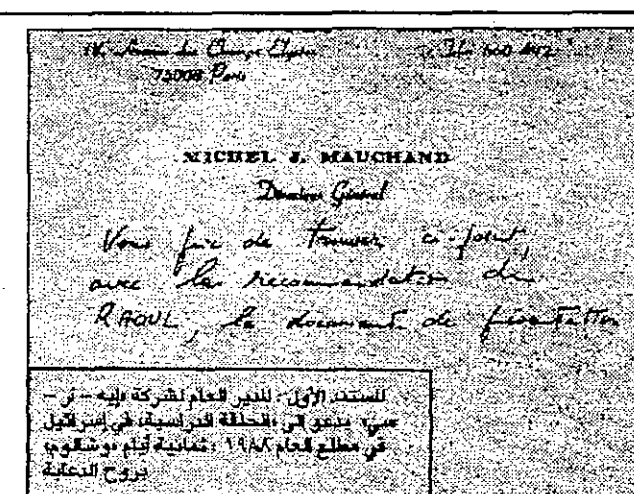 75008 Paris
MICHEL J. MAUCHAND
Directeur Général
Vous prie de trouver ci-joint,
avec la recommandation de
RAOUL, le document de présentation
المستند الأول: المدير العام لشركة
يدعو الى الحلقة الدراسية، في إسرائيل
في مطلع العام ١٩٨٨: ثمانية أيام
بروح الدعابة